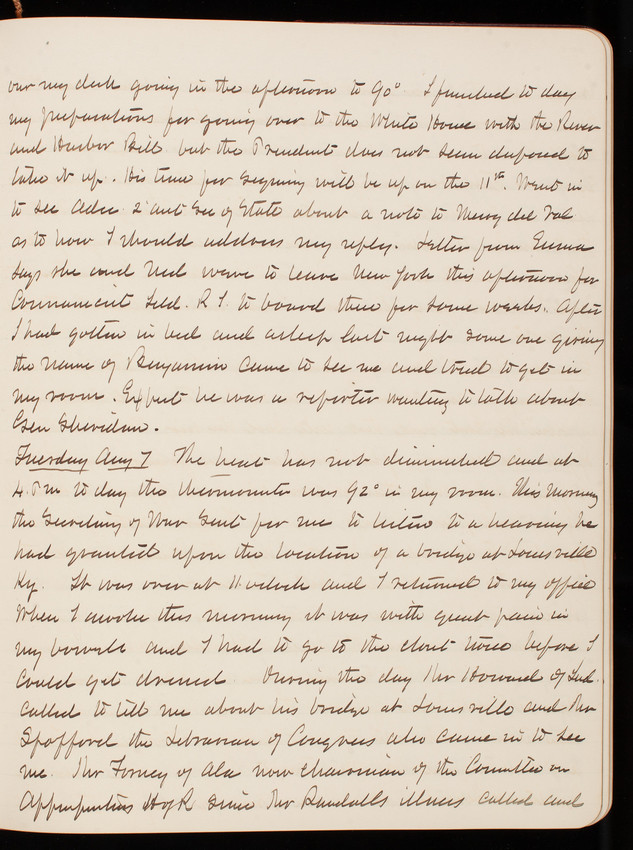 over my desk going in the afternoon to 90° I finished to day
my preparations for going over to the White House with the River
and Harbor Bill but the President does not seem disposed to
take it up. His time for signing will be up on the 11th. Went in
to see Adee 2d Asst Sec of State about a note to Mery del Val
as to how I should address my reply. Letter from Emma
says she and Ned were to leave New York this afternoon for
Conanicut Isld. R I. to board there for some weeks. After
I had gotten in bed and asleep last night some one giving
the name of Benjamin came to see me and tried to get in
my room. Expect he was a reporter wanting to talk about
Gen Sheridan.
Tuesday Aug 7 The heat has not diminished and at
4. Pm to day the thermometer was 92° in my room. This morning
the Secretary of War sent for me to listen to a hearing he
had granted upon the location of a bridge at Louisville
Ky. It was over at 11 oclock and I returned to my office
When I awoke this morning it was with great pain in
my bowels and I had to go to the closet twice before I
could get dressed. During the day Mr Howard of Ind.
called to tell me about his bridge at Louisville and Mr
Spofford the Librarian of Congress also came in to see
me. Mr Forney of Ala now chairman of the Committee on
Appropriations H of R since Mr Randalls illness called and